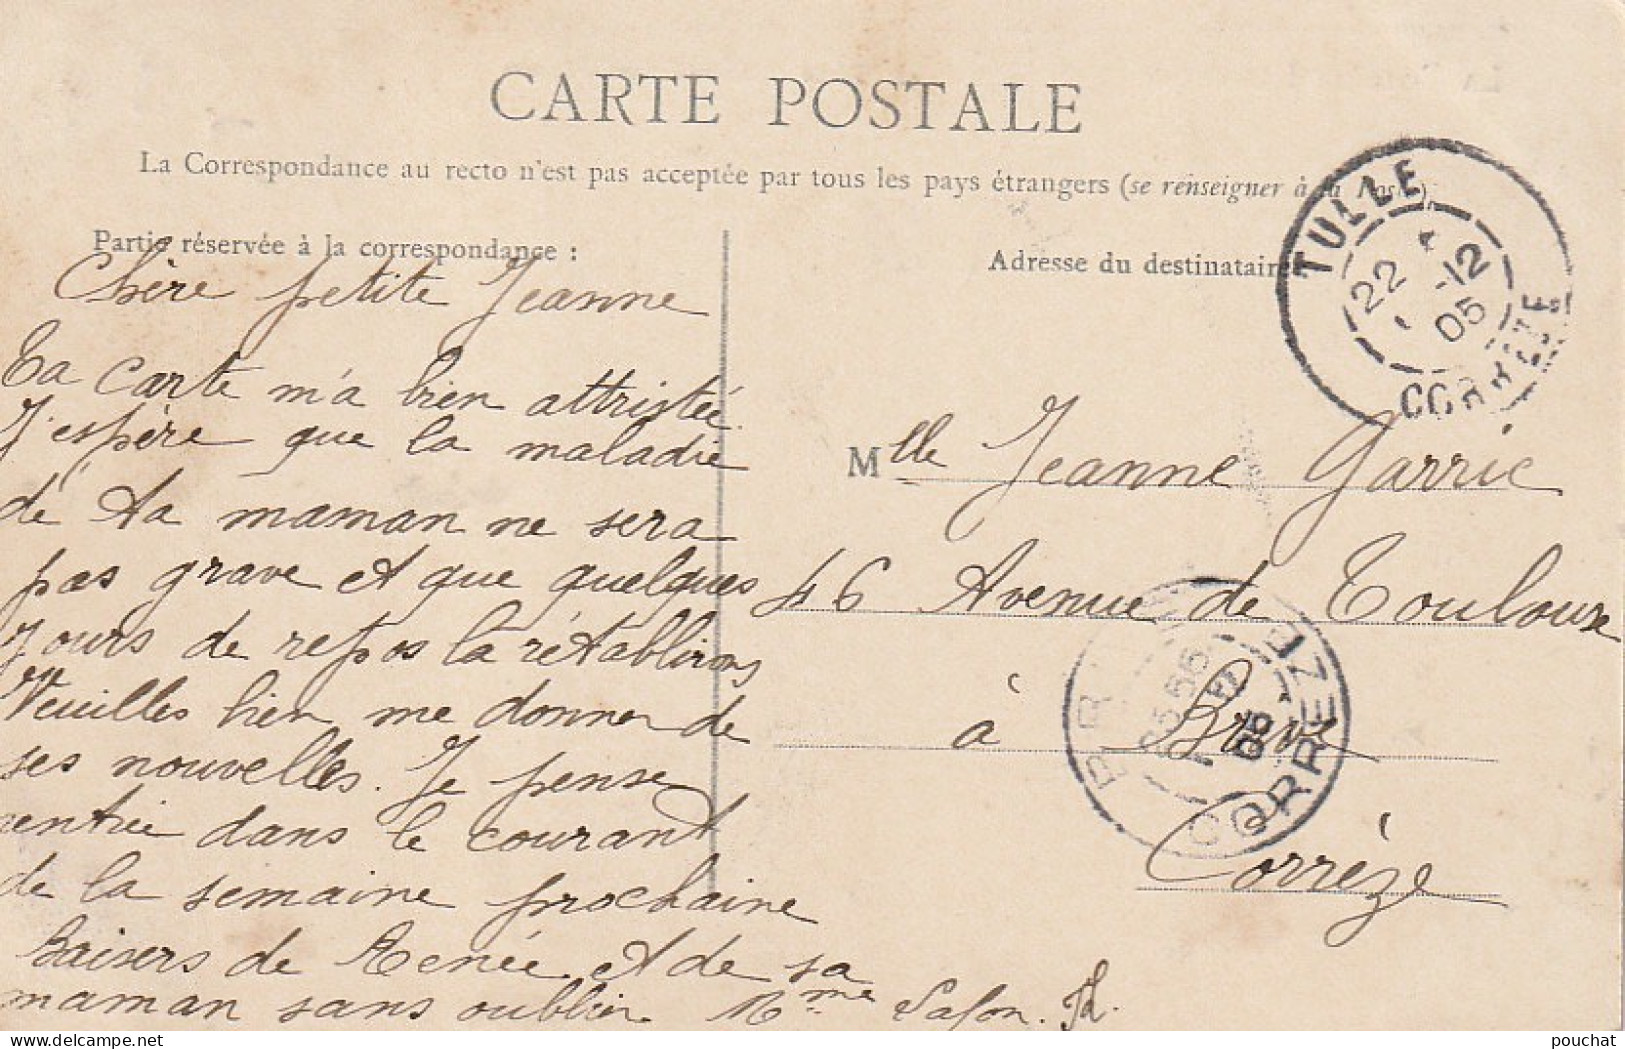 CARTE POSTALE
La Correspondance au recto n'est pas acceptée par tous les pays étrangers (se renseigner à la Poste)
Partie réservée à la correspondance :
Adresse du destinataire
TULLE
22 -12
05
CORRÈZE
Chère petite Jeanne
Ta carte m'a bien attristée.
J'espère que la maladie
de ta maman ne sera
pas grave et que quelques
jours de repos la rétablirons
Veuilles bien me donner de
ses nouvelles. Je pense
rentrée dans le courant
de la semaine prochaine
Baisers de Renée et de sa
maman sans oublier Mme Lafon.
Mlle Jeanne Garric
46 Avenue de Toulouse
à Brive
Corrèze
CORREZE
05
pouchat